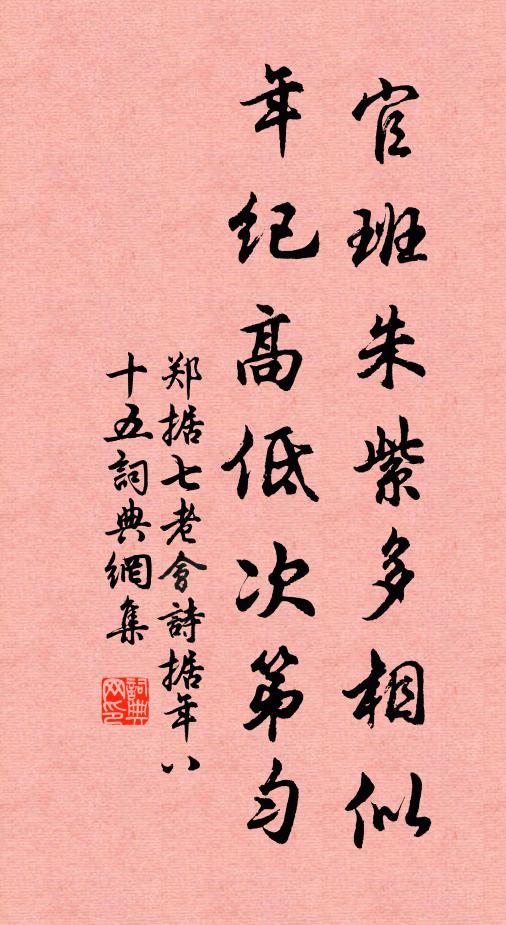 官班朱紫多相似
年纪高低次第匀
郑据七老會詩据年八
十五詞典網集
詞典网印